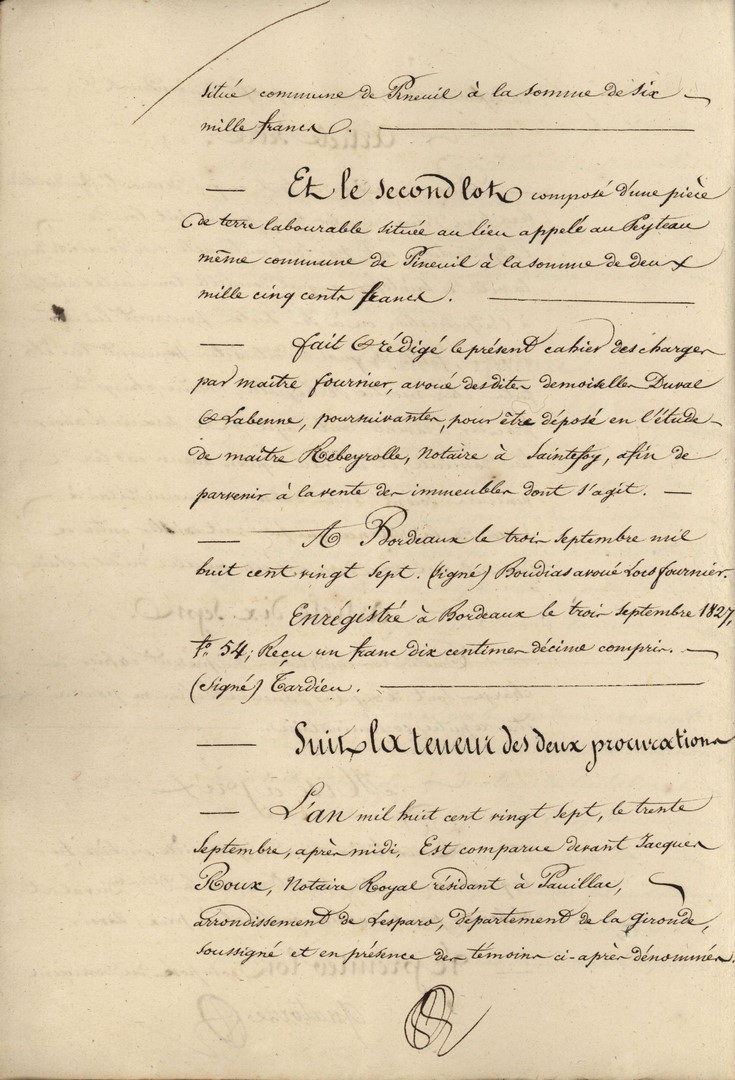 situé commune de Pineuil à la somme de six
mille francs.
Et le second lot composé d'une pièce
de terre labourable située au lieu appelé au Peyteau
même commune de Pineuil à la somme de deux
mille cinq cents francs.
fait & rédigé le présent cahier des charges
par maître fournier, avoué desdites demoiselles Duval
& Labenne, poursuivantes, pour être déposé en l'étude
de maître Rebeyrolle, Notaire à Saintefoy, afin de
parvenir à la vente des immeubles dont s'agit.
A Bordeaux le trois septembre mil
huit cent vingt sept. (signé) Boudias avoué Loco fournier.
Enregistré à Bordeaux le trois septembre 1827,
fo. 54; Reçu un franc dix centimes décime compris.
(signé) Tardieu.
Suit la teneur des deux procurations
L'an mil huit cent vingt sept, le trente
septembre, après midi, Est comparue devant Jacques
Roux, Notaire Royal résidant à Pauillac,
arrondissement de Lesparo, département de la Gironde,
soussigné et en présence des témoins ci-après dénommés.